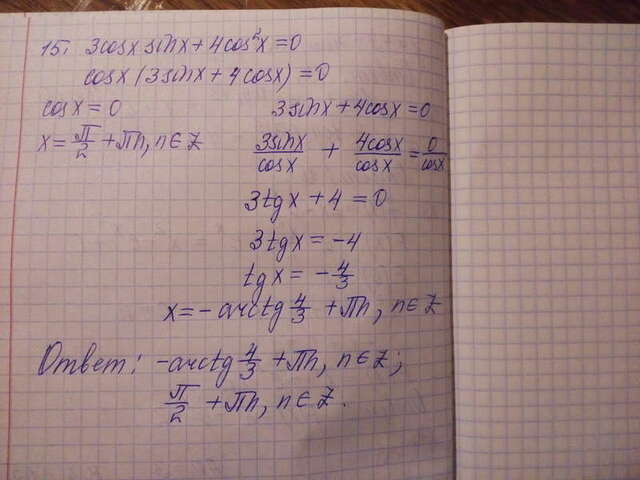 15. 3cosx sinx + 4cos²x = 0
cosx (3sinx + 4cosx) = 0
cosx = 0 3sinx + 4cosx = 0
x = π/2 + πn, n ∈ Z 3sinx/cosx + 4cosx/cosx = 0/cosx
3tgx + 4 = 0
3tgx = -4
tgx = -4/3
x = -arctg 4/3 + πn, n ∈ Z
Ответ: -arctg 4/3 + πn, n ∈ Z;
π/2 + πn, n ∈ Z.